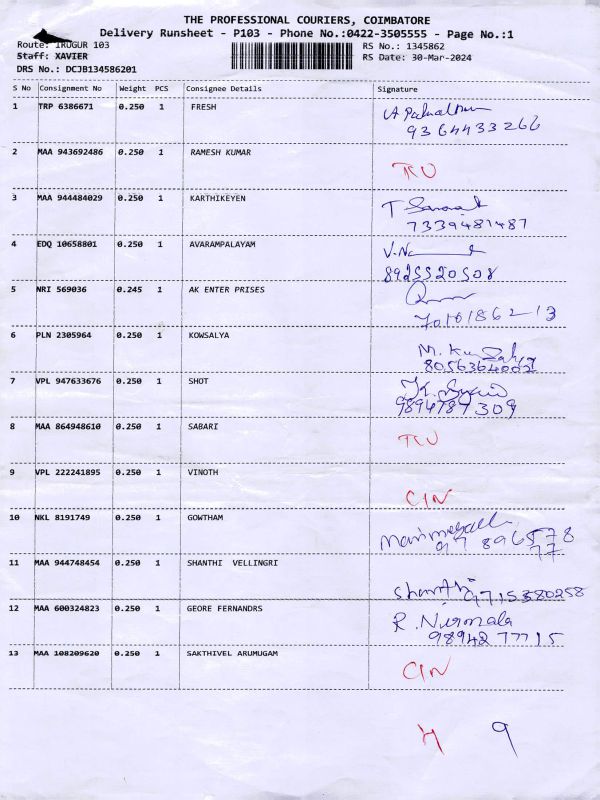 THE PROFESSIONAL COURIERS, COIMBATORE
Delivery Runsheet - P103 - Phone No.:0422-3505555 - Page No.:1
Route: IRUGUR 103 RS No.: 1345862
Staff: XAVIER RS Date: 30-Mar-2024
DRS No.: DCJB134586201
S No Consignment No Weight PCS Consignee Details Signature
1 TRP 6386671 0.250 1 FRESH
9364433266
2 MAA 943692486 0.250 1 RAMESH KUMAR
3 MAA 944484029 0.250 1 KARTHIKEYEN
7339481487
4 EDQ 10658801 0.250 1 AVARAMPALAYAM
8925520508
5 NRI 569036 0.245 1 AK ENTER PRISES
6 PLN 2305964 0.250 1 KOWSALYA
8056364002
7 VPL 947633676 0.250 1 SHOT
9894787309
8 MAA 864948610 0.250 1 SABARI
9 VPL 222241895 0.250 1 VINOTH
CIN
10 NKL 8191749 0.250 1 GOWTHAM
11 MAA 944748454 0.250 1 SHANTHI VELLINGRI
Shanthi 9715380258
12 MAA 600324823 0.250 1 GEORE FERNANDRS
R. Nirmala
9894277715
13 MAA 108209620 0.250 1 SAKTHIVEL ARUMUGAM
CIN
4 9